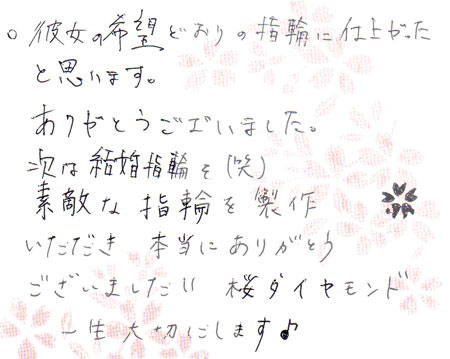 ○ 彼女の希望どおりの指輪に仕上がった
と思います。
ありがとうございました。
次は結婚指輪を(笑)
素敵な指輪を製作
いただき 本当にありがとう
ございました!! 桜ダイヤモンド
一生大切にします♪